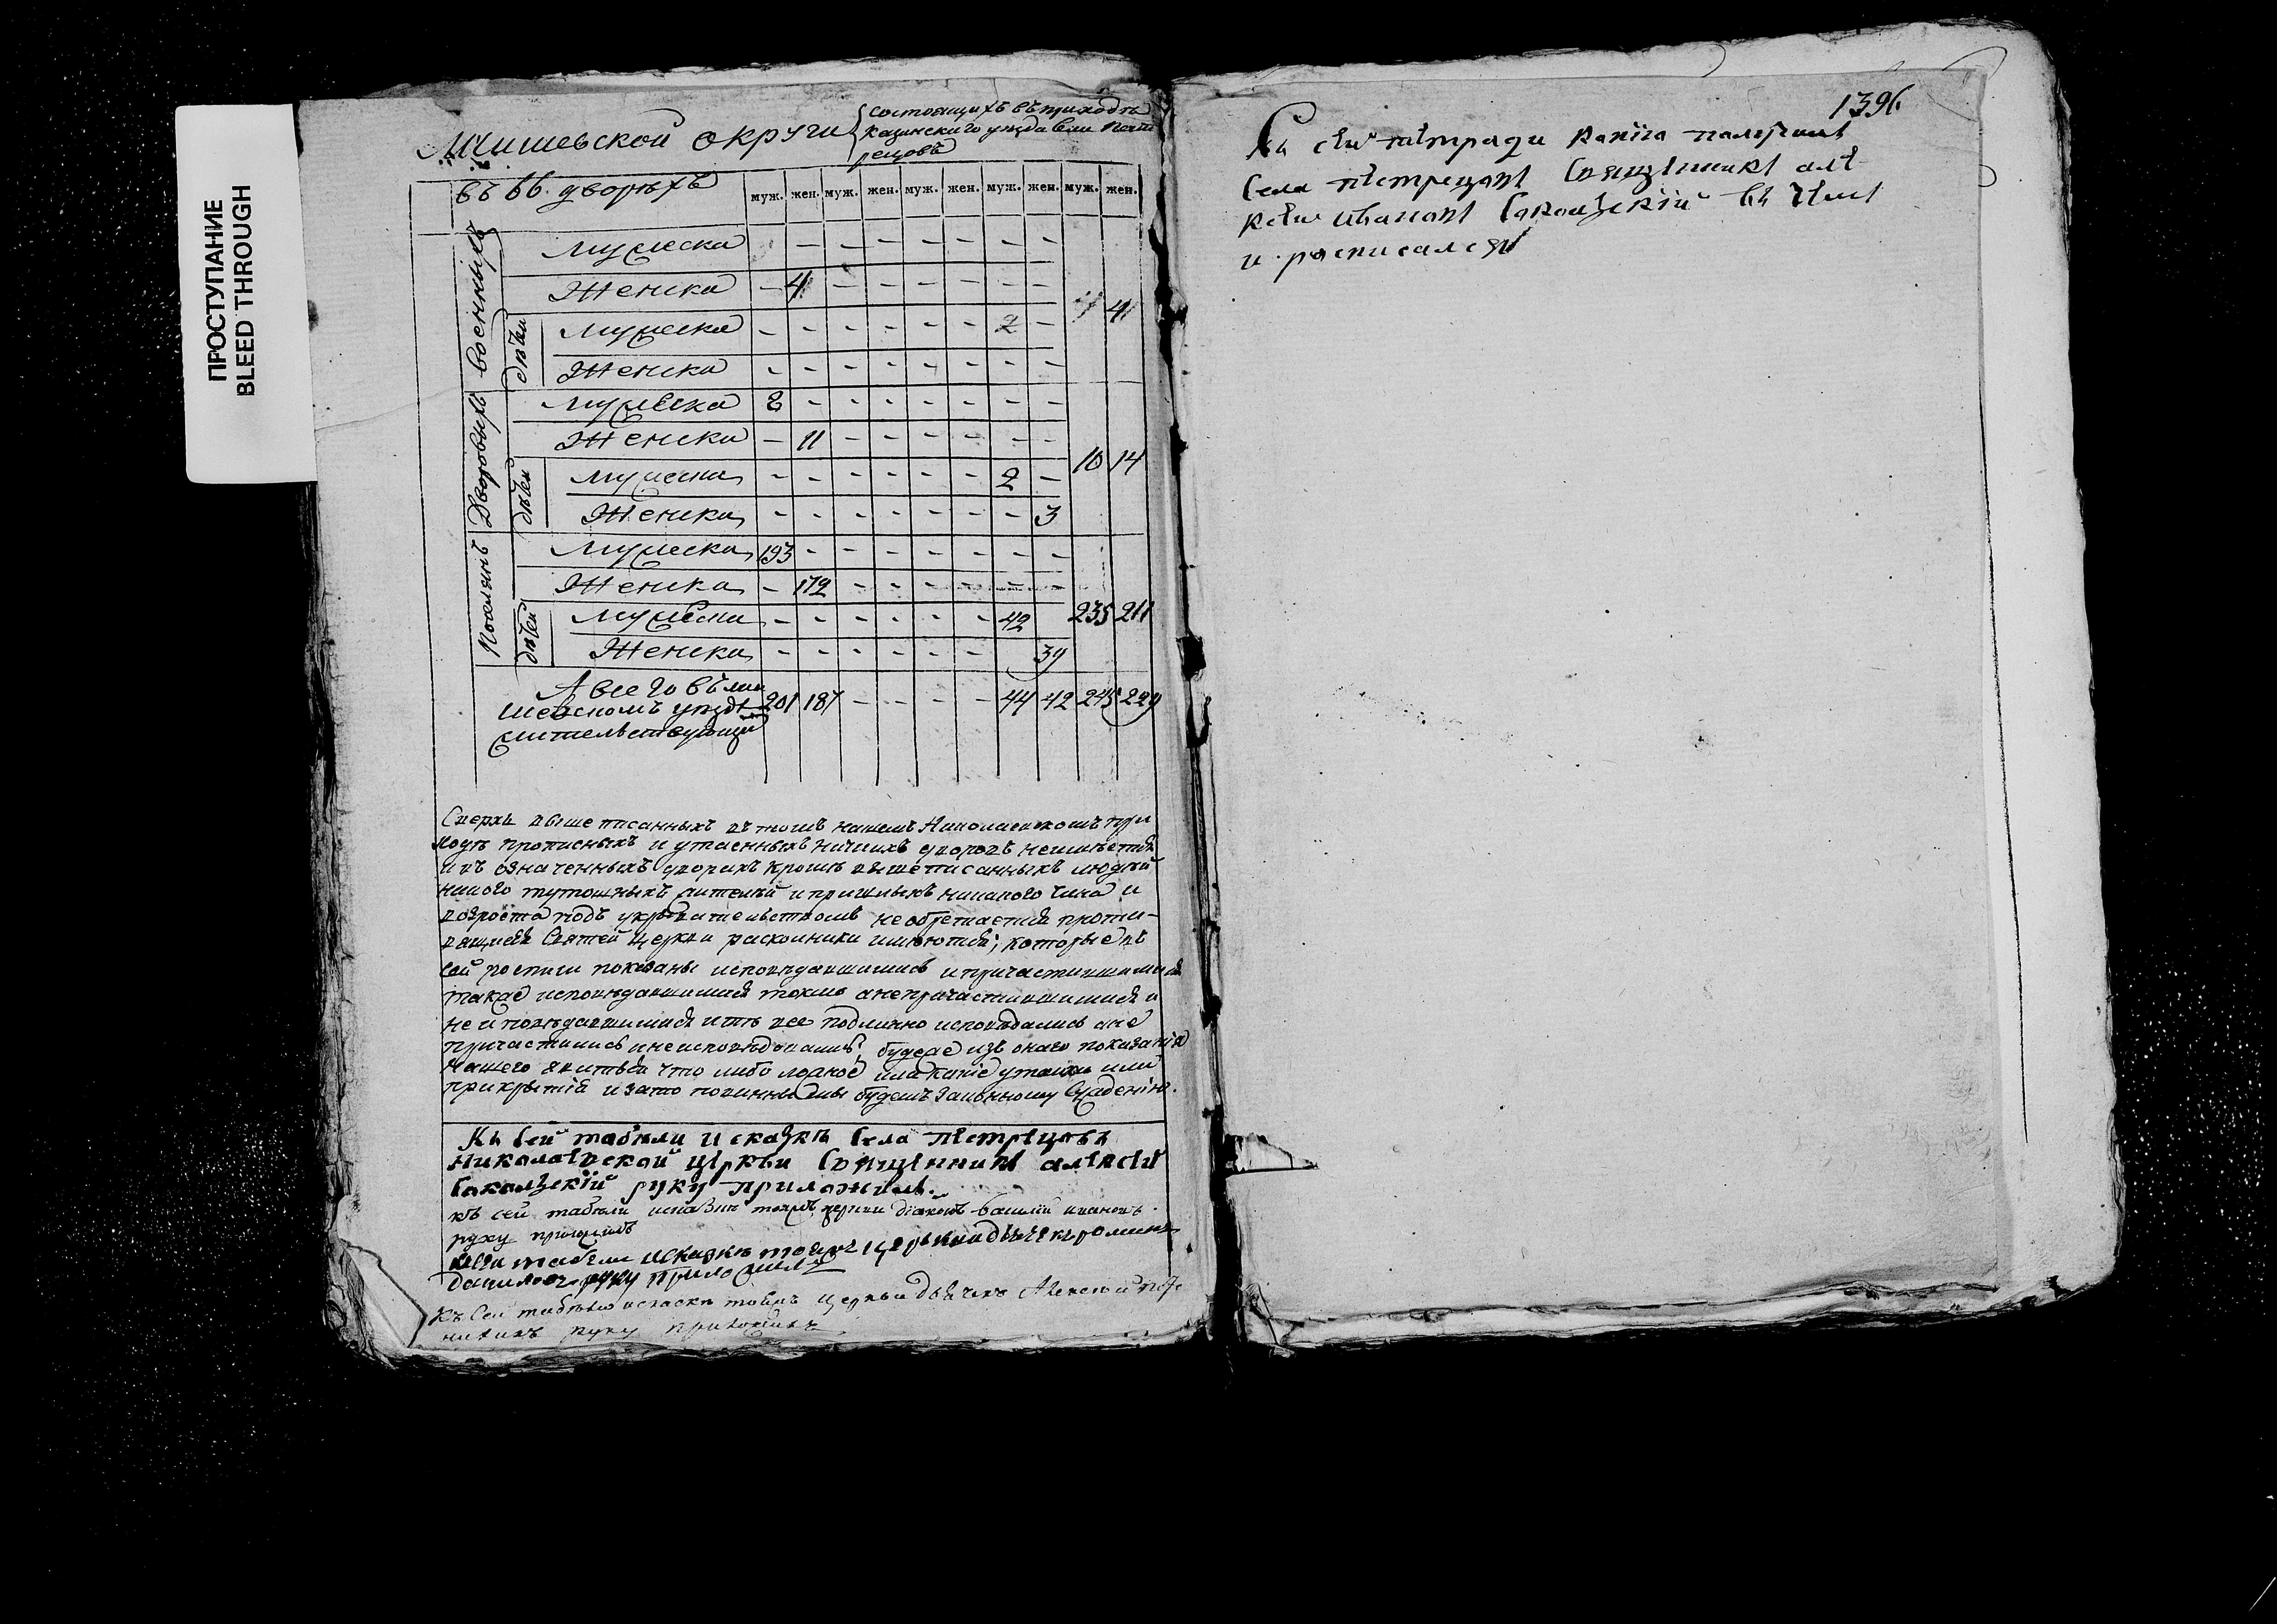 ПРОСТУПАНИЕ
BLEED THROUGH
Мамышевской округи
состоящихъ въ приходѣ
Казанского уѣзда села Пест
рецовъ
въ 66. дворѣхъ
муж. жен. муж. жен. муж. жен. муж. жен. муж. жен.
военныхъ
Мужеска - - - - - - -
Женска - 4 - - - - - -
4 4
дѣтей
Мужеска - - - - - - 2 -
Женска - - - - - - - -
Дворовыхъ
Мужеска 8 - - - - - - -
Женска - 11 - - - - - -
10 14
дѣтей
Мужеска - - - - - - 2 -
Женска - - - - - - - 3
Поселянъ
Мужеска 193 - - - - - - -
Женска - 172 - - - - - -
235 211
дѣтей
Мужеска - - - - - - 42
Женска - - - - - - 39
А всего въ
шевскомъ уѣздѣ 201 187 - - - - 44 42 245 229
жительствующихъ
Сверхъ выше писанныхъ въ томъ нашемъ Николаевскомъ при
ходѣ прописныхъ и утаенныхъ ничьихъ дворовъ неимѣется
и въ означенныхъ дворахъ кромѣ выше писанныхъ людей
никого тутошныхъ жителей и пришлыхъ никакого чина и
возроста подъ укрывательствомъ не обретается проти-
вящияся Святей церкви раскольники имеются; которые въ
сей росписи показаны исповѣдавшимися и причастившимися
также исповѣдавшимися токмо а непричастившимися и
не исповѣдавшимися и тѣ все подлинно исповѣдались а не
причастились и неисповѣдовались, будеже изъ онаго показанія
нашего явится что либо ложное или какие утайки или
прикрытія и зато повинны мы будемъ законному сужденію.
Къ сей табели и сказкѣ села пестрецовъ
николаевской церкви священникъ алексей
сокольскій руку приложилъ.
къ сей табели и сказке тоежъ церкви діаконъ василій ивановъ
руку приложилъ
къ сей табели и сказкѣ тоежъ церькви дьячекъ романъ
даниловъ руку приложилъ
Къ сей табѣли и скаске тоежъ церкви дьячекъ Алексей
руку приложилъ
1396
Съ сей тетради копiю получилъ
села пестрецовъ священникъ але-
ксей ивановъ сокольскiй въ чемъ
и росписался